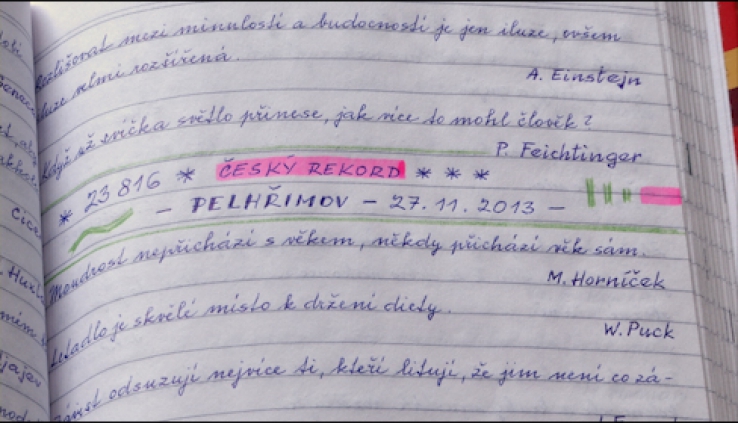 Rozlišovat mezi minulostí a budocností je jen iluze, ovšem
iluze velmi rozšířená.
A. Einstejn
Když už svíčka světlo přinese, jak více to mohl člověk?
P. Feichtinger
* 23 816 * ČESKÝ REKORD * * *
- PELHŘIMOV - 27.11.2013 -
Moudrost nepřichází s věkem, někdy přichází věk sám.
M. Horníček
Letadlo je skvělé místo k držení diety.
W. Puck
odsuzují nejvíce ti, kteří litují, že jim není co zá-